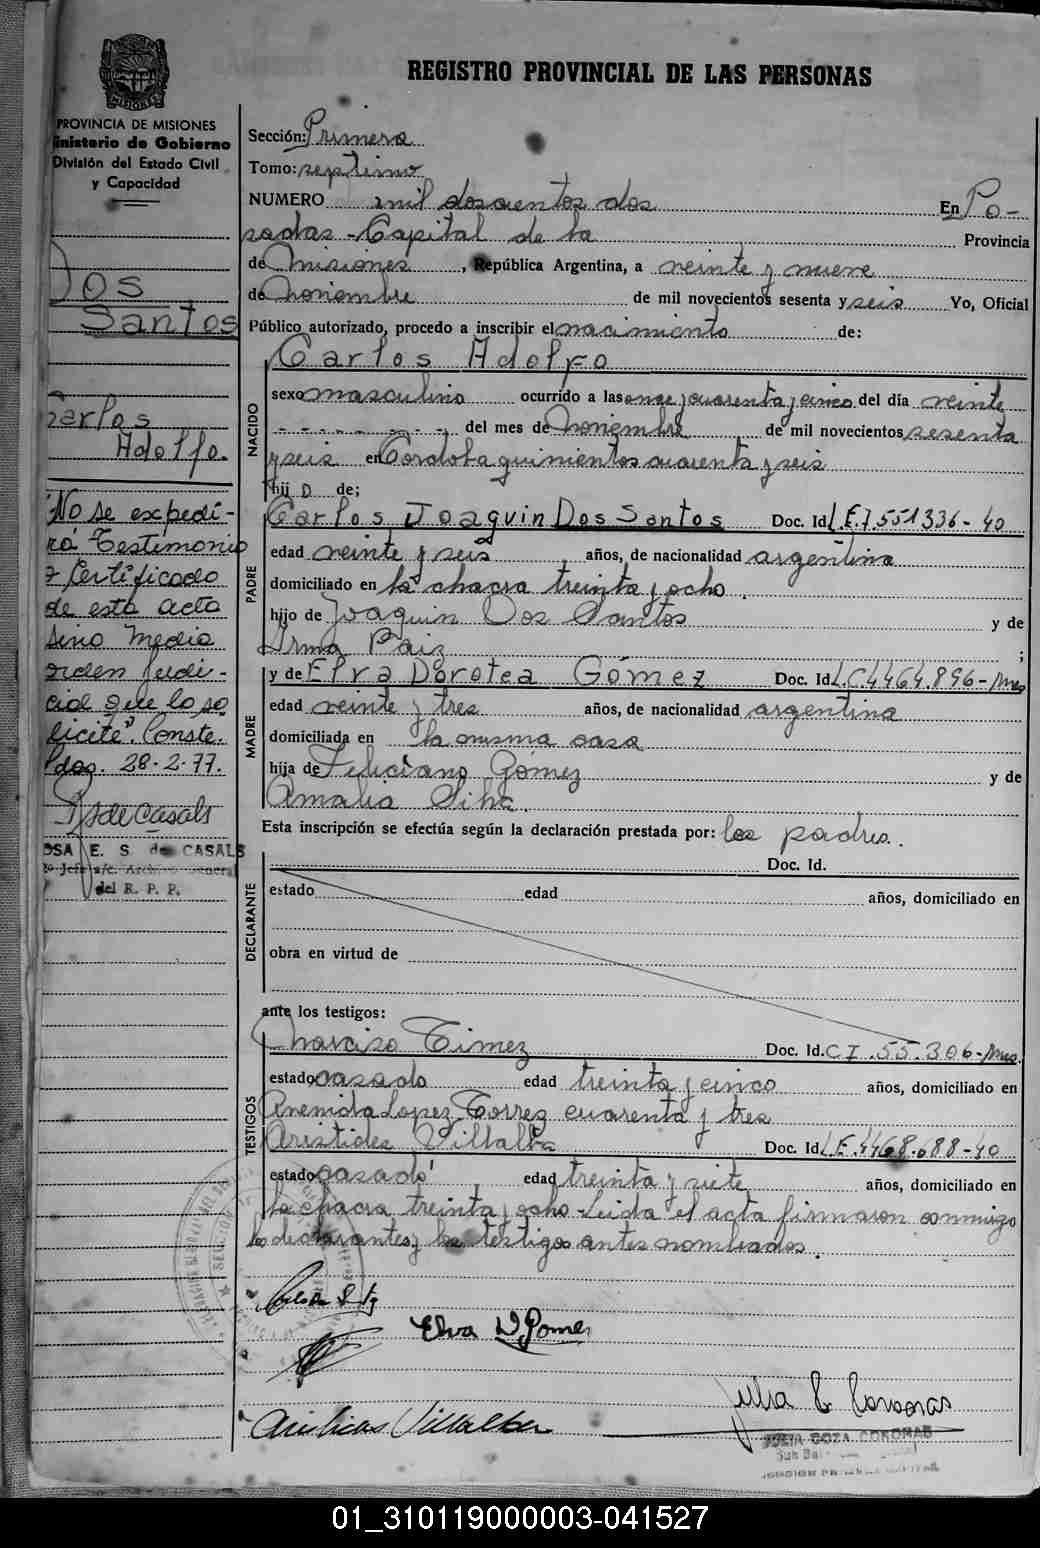 REGISTRO PROVINCIAL DE LAS PERSONAS
MISIONES
PROVINCIA DE MISIONES
inisterio de Gobierno
División del Estado Civil
y Capacidad
Dos
Santos
Carlos
Adolfo.
"No se expedi-
rá Testimonio
y Certificado
de esta acta
sino media
orden judi-
cial que lo so
licite". Conste.
Pdas. 28-2-77.
de Casals
OSA E. S. de CASALS
Jefe a/c. Archivo General
del R. P. P.
Sección: Primera
Tomo: septimo
NUMERO mil doscientos dos En Po-
sadas - Capital de la Provincia
de Misiones, República Argentina, a veinte y nueve
de Noviembre de mil novecientos sesenta y seis Yo, Oficial
Público autorizado, procedo a inscribir el nacimiento de:
NACIDO
Carlos Adolfo
sexo masculino ocurrido a las once y cuarenta y cinco del día veinte
del mes de Noviembre de mil novecientos sesenta
y seis en Cordoba quinientos cuarenta y seis
hij o de;
PADRE
Carlos Joaquin Dos Santos Doc. Id. L.E.7.551336-40
edad veinte y seis años, de nacionalidad argentina
domiciliado en la chacra treinta y ocho.
hijo de Joaquin Dos Santos y de
Irma Paiz ;
MADRE
y de Elva Dorotea Gómez Doc. Id. L.C.4464.896-Mnes
edad veinte y tres años, de nacionalidad argentina
domiciliada en la misma casa
hija de Feliciano Gómez y de
Amalia Silva.
Esta inscripción se efectúa según la declaración prestada por: los padres.
DECLARANTE
Doc. Id.
estado edad años, domiciliado en
obra en virtud de
ante los testigos:
TESTIGOS
Narciso Gimez Doc. Id. C.I.55.306-Mnes.
estado casado edad treinta y cinco años, domiciliado en
Avenida Lopez Torres cuarenta y tres
Aristides Villalba Doc. Id. L.E.4468.688-40
estado casado edad treinta y siete años, domiciliado en
la chacra treinta y ocho - Leida el acta firmaron conmigo
los declarantes y los testigos antes nombrados.
Elva D Gomez
Aristides Villalba
Julia G. Coronas
JULIA GOZA CORONAS
01_310119000003-041527